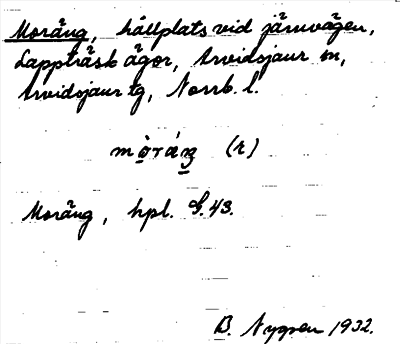 Moräng, hållplats vid järnvägen,
Lappträsk ägor, Arvidsjaur sn,
Arvidsjaur tg, Norrb. l.
mòráŋ (r)
Moräng, hpl. G. 43.
B. Nygren 1932.